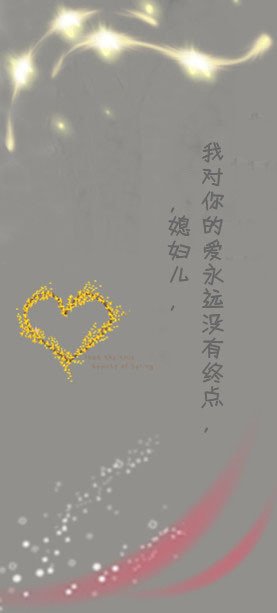 我对你的爱永远没有终点，
，媳妇儿，
beauty of Spring